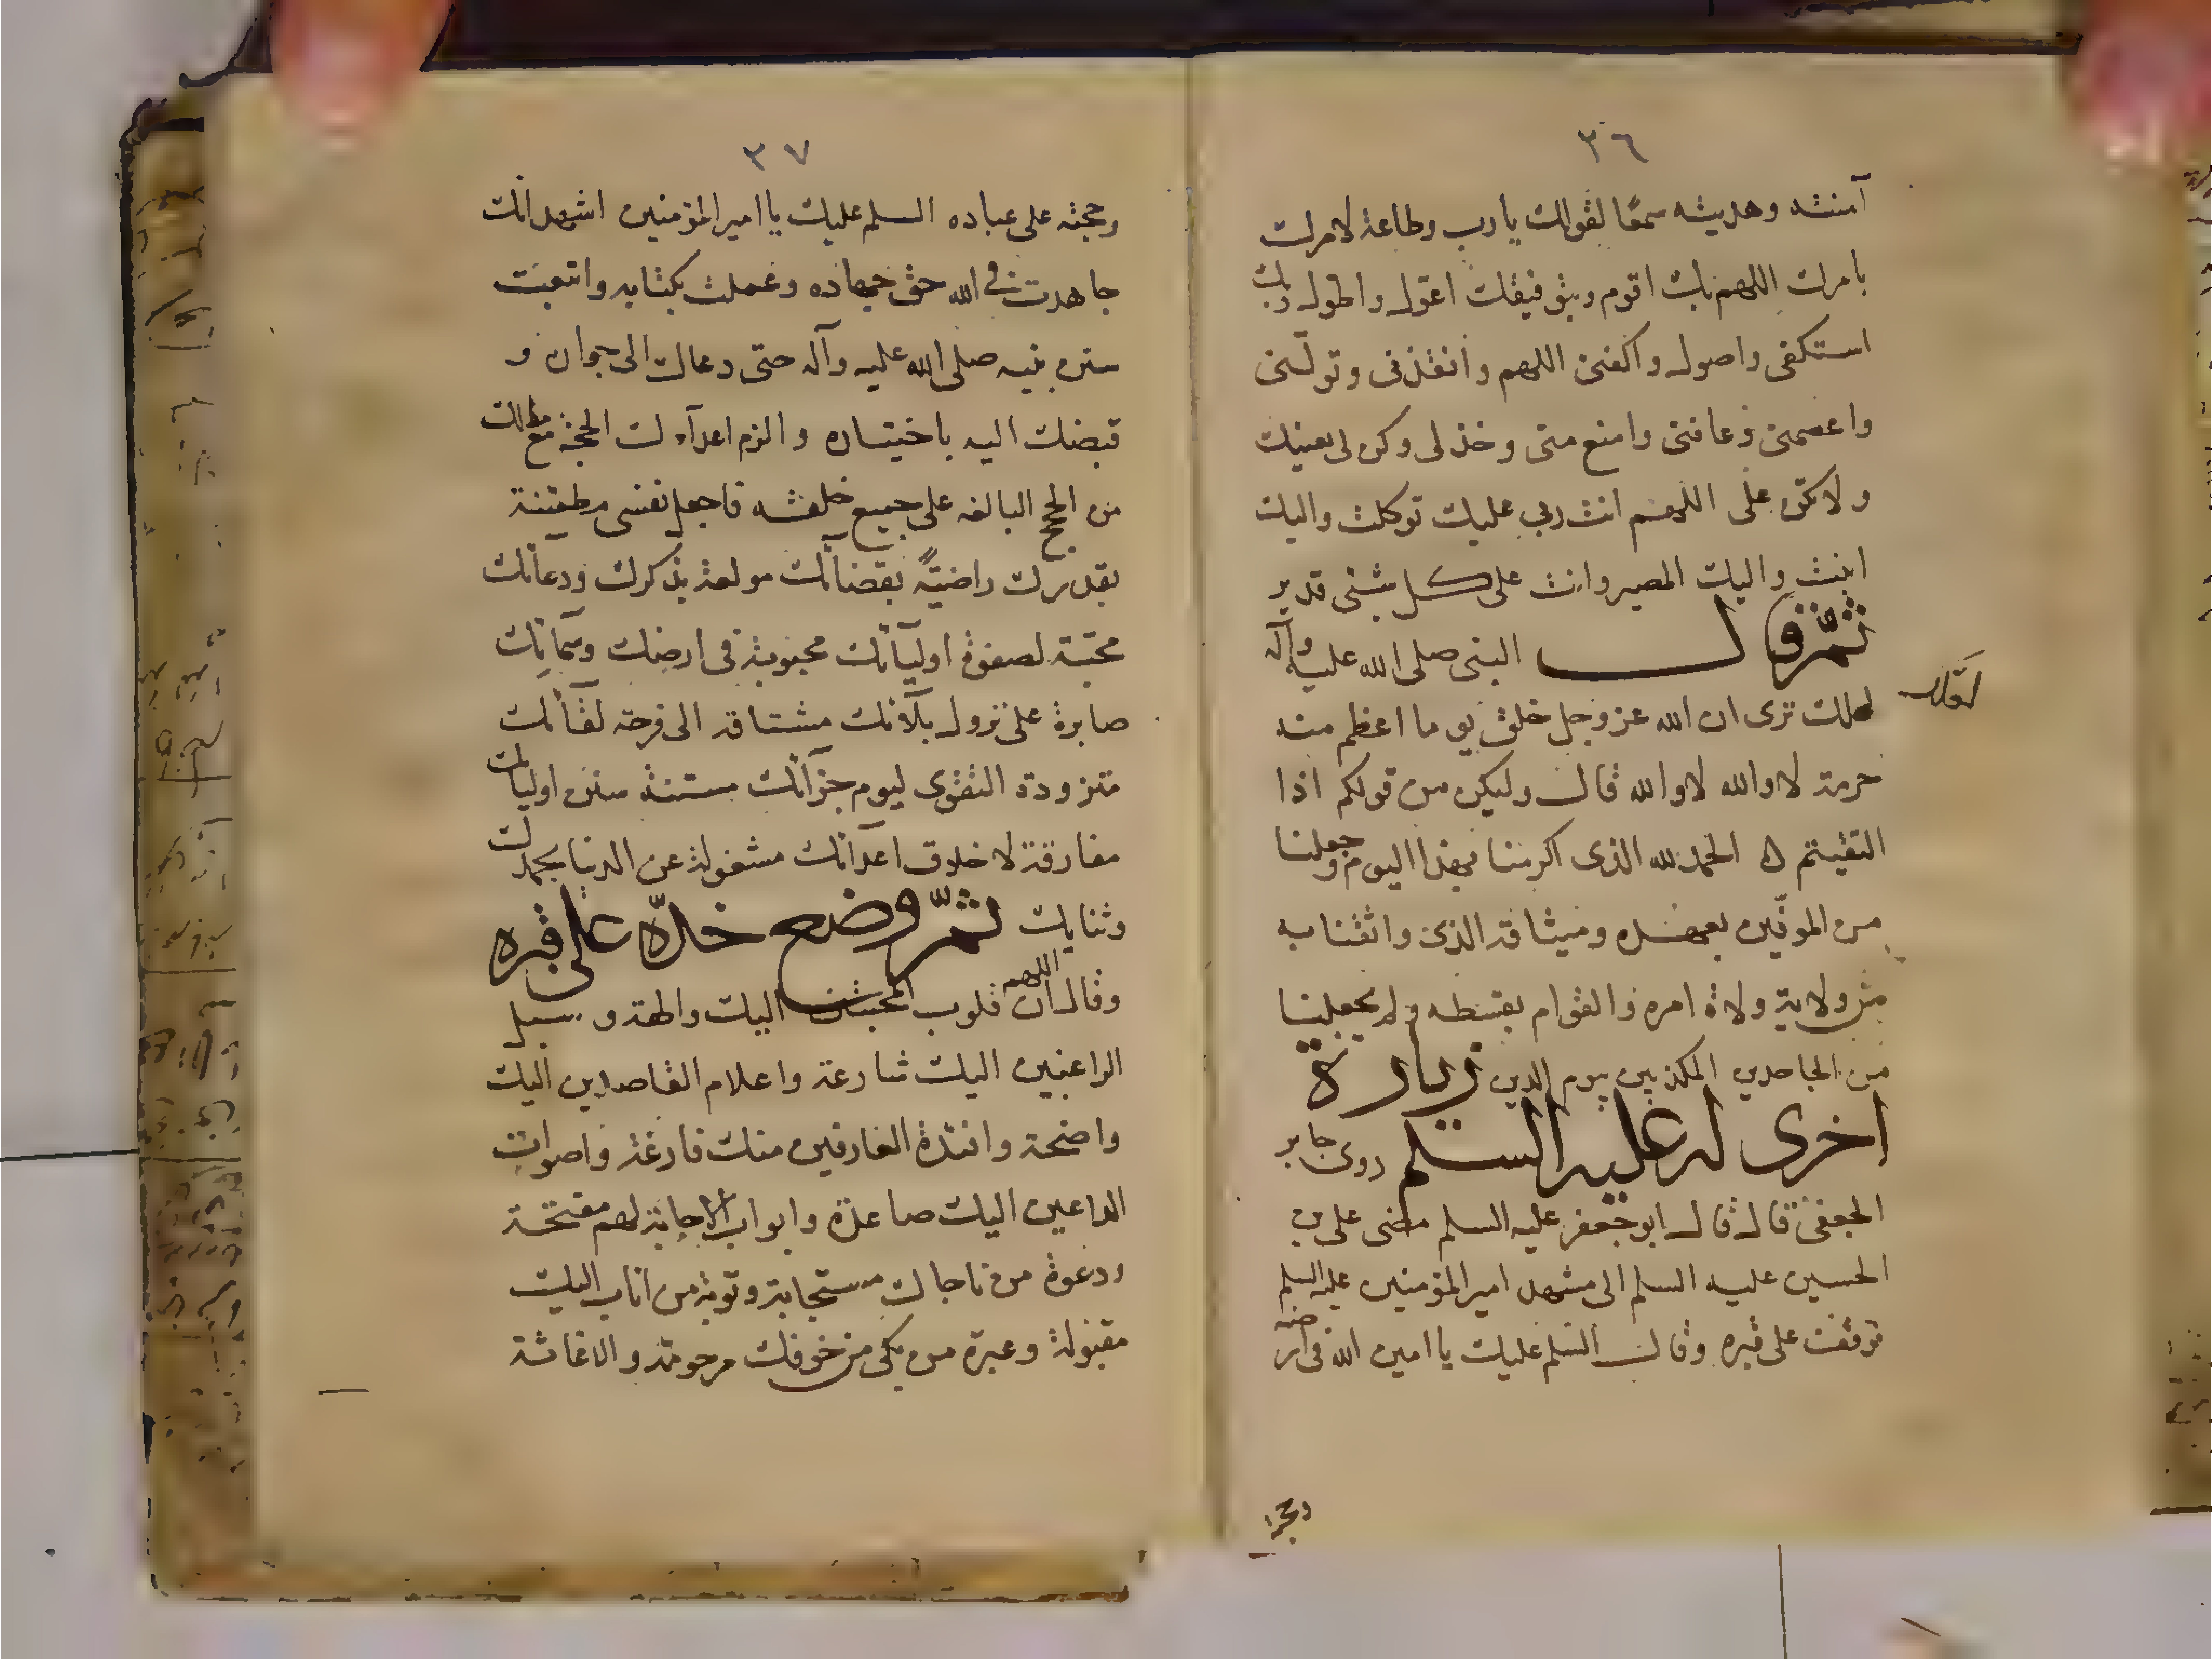 ٣٦
آمنته وهديته سمعًا لقولك يا رب وطاعة لامرك
بامرك اللهم بك اقوم وبتوفيقك اقول واطول وبك
استكفى واصول واكفنى اللهم وانقذنى وتولنى
واعصمنى وعافنى وامنع منى وخذ لى وكن لى بعينك
ولا تكن على اللهم انت ربى عليك توكلت واليك
انبت واليك المصير وانت على كل شئى قدير
ثم قال النبى صلى الله عليه وآله
لعلك ترى ان الله عز وجل خلق يوما اعظم منه
حرمة لا والله لا والله قال وليكن من قولكم اذا
التقيتم الحمد لله الذى اكرمنا بهذا اليوم وجعلنا
من الموفين بعهده وميثاقه الذى واثقنا به
من ولاية ولاة امره والقوام بقسطه ولم يجعلنا
من الجاحدين المكذبين بيوم الدين زيارة
اخرى له عليه السلم روى جابر
الجعفى قال قال ابو جعفر عليه السلم مضى على بن
الحسين عليه السلم الى مشهد امير المؤمنين عليه السلم
فوقفت على قبره وقال السلم عليك يا امين الله فى ارضه
وحجته
٣٧
وحجته على عباده السلم عليك يا امير المؤمنين اشهد انك
جاهدت فى الله حق جهاده وعملت بكتابه واتبعت
سنن نبيه صلى الله عليه وآله حتى دعاك الى جواره و
قبضك اليه باختياره والزم اعدآءك الحجة مع مالك
من الحجج البالغه على جميع خلقه فاجعل نفسى مطمئنة
بقدرك راضيةً بقضآئك مولعة بذكرك ودعآئك
محبة لصفوة اوليآئك محبوبة فى ارضك وسمآئك
صابرة على نزول بلآئك مشتاقه الى فرحة لقآئك
متزودة التقوى ليوم جزآئك مستنة بسنن اوليآئك
مفارقة لاخلاق اعدآئك مشغولة عن الدنيا بحمدك
وثنايك ثم وضع خده على قبره
وقال اللهم ان قلوب المخبتين اليك والهة وسبل
الراغبين اليك شارعة واعلام القاصدين اليك
واضحة وافئدة العارفين منك فازعة واصوات
الداعين اليك صاعدة وابواب الاجابة لهم مفتحة
ودعوة من ناجاك مستجابة وتوبة من اناب اليك
مقبولة وعبرة من بكى من خوفك مرحومة والاغاثة